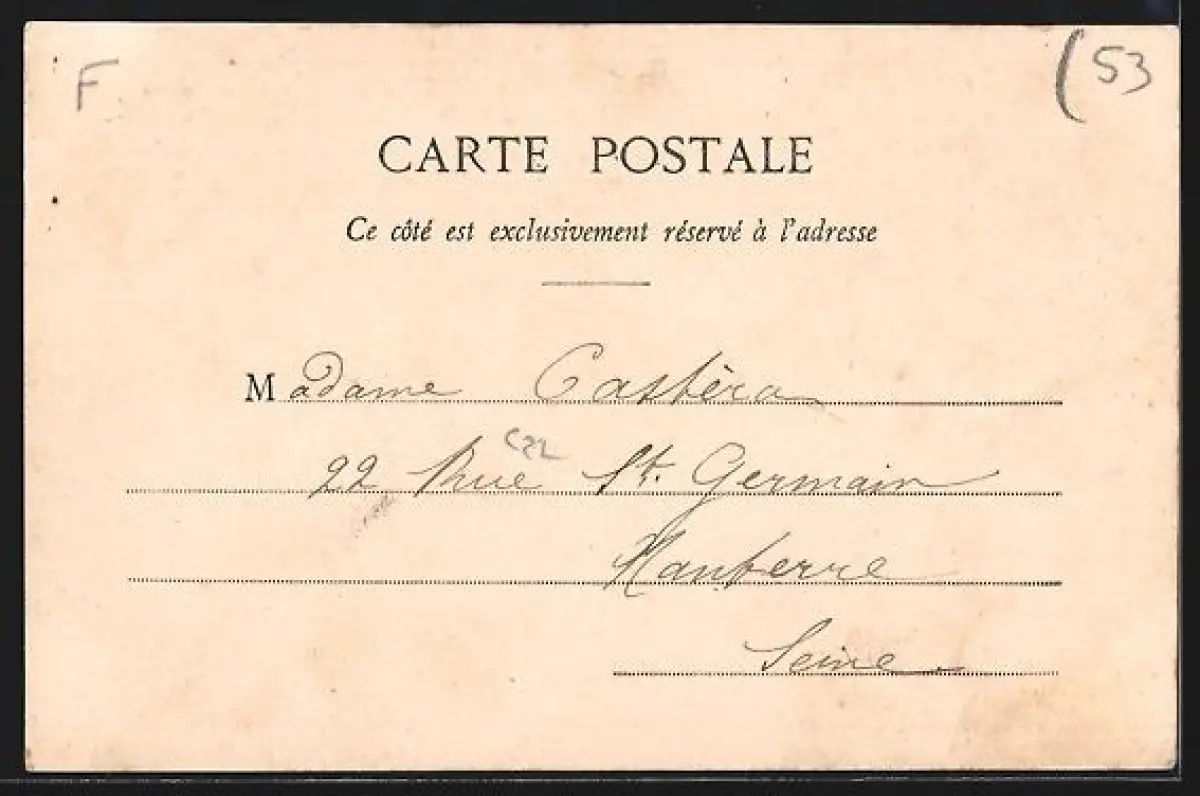 F
(53
CARTE POSTALE
Ce côté est exclusivement réservé à l'adresse
Madame Castéra
22 Rue St. Germain
Nanterre
Seine